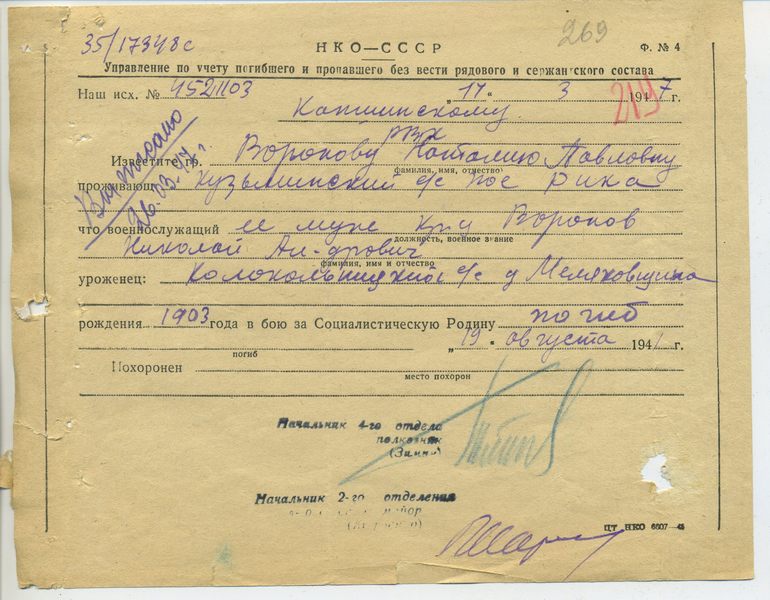 35/17348с
269
НКО—СССР
Ф. № 4
Управление по учету погибшего и пропавшего без вести рядового и сержантского состава
Наш исх. № 4521103 „17“ 3 1947 г.
Капшинскому
РВК
Выписано
26.03.47 г.
Известите гр. Воронову Наталию Павловну
фамилия, имя, отчество
проживающую Кузьминский с/с пос Рика
что военнослужащий ее муж кр-ц Воронов
должность, военное звание
Николай Ал-дрович
фамилия, имя и отчество
уроженец: Колокольницкий с/с д
рождения 1903 года в бою за Социалистическую Родину погиб
„19“ августа 194 г.
погиб
Похоронен
место похорон
Начальник 4-го отдела
полковник
Начальник 2-го отделения
майор
ЦТ НКО 6607—45